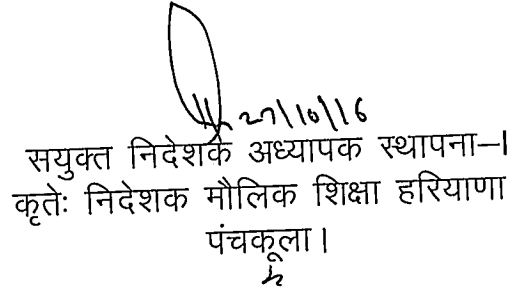 27/10/16
सयुक्त निदेशक अध्यापक स्थापना–I
कृतेः निदेशक मौलिक शिक्षा हरियाणा
पंचकूला।